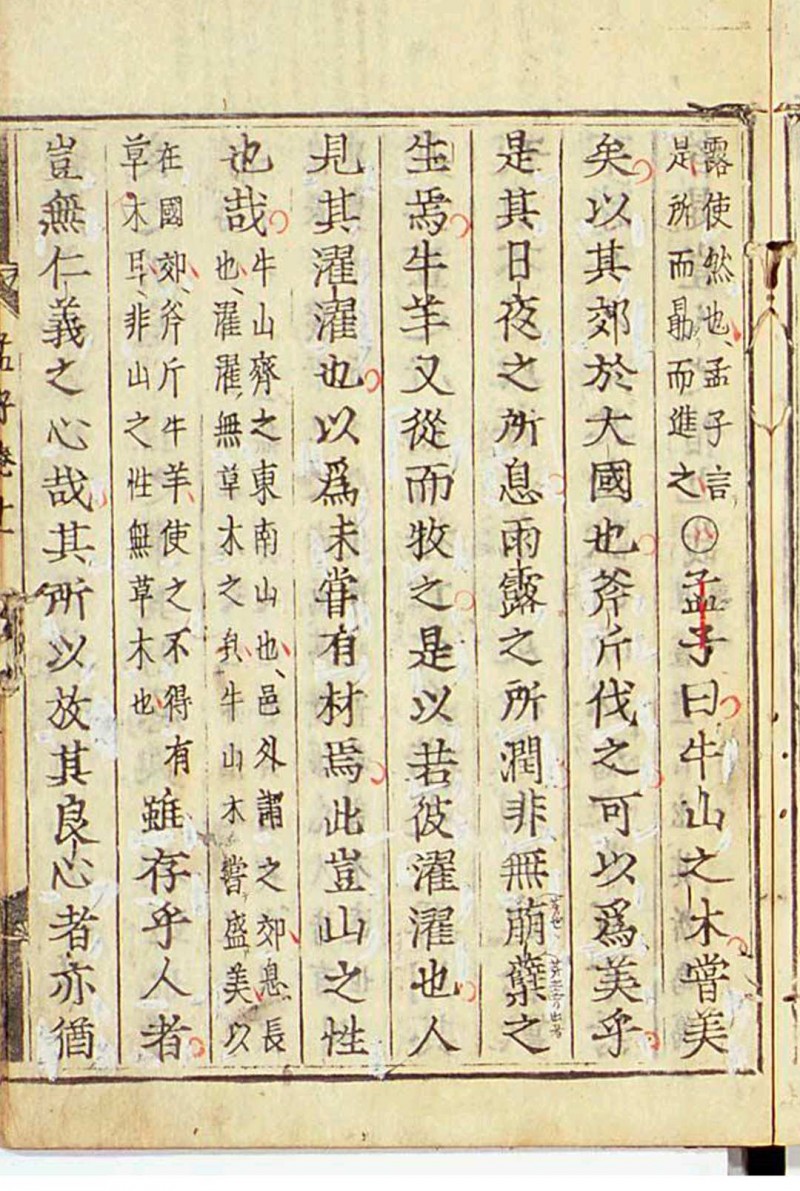 露使然也、孟子言
是所而勗而進之
〇孟子曰牛山之木嘗美
矣以其郊於大國也斧斤伐之可以爲美乎
是其日夜之所息雨露之所潤非無萌蘖之
生焉牛羊又從而牧之是以若彼濯濯也人
見其濯濯也以爲未嘗有材焉此豈山之性
也哉
牛山齊之東南山也、邑外謂之郊、息長
也、濯濯、無草木之皃、牛山木嘗盛美以
在國郊、斧斤牛羊、使之不得有
草木耳、非山之性無草木也
雖存乎人者
豈無仁義之心哉其所以放其良心者亦猶